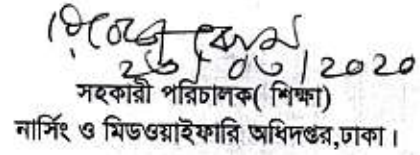 ২৬/০৩/2020
সহকারী পরিচালক( শিক্ষা)
নার্সিং ও মিডওয়াইফারি অধিদপ্তর,ঢাকা।